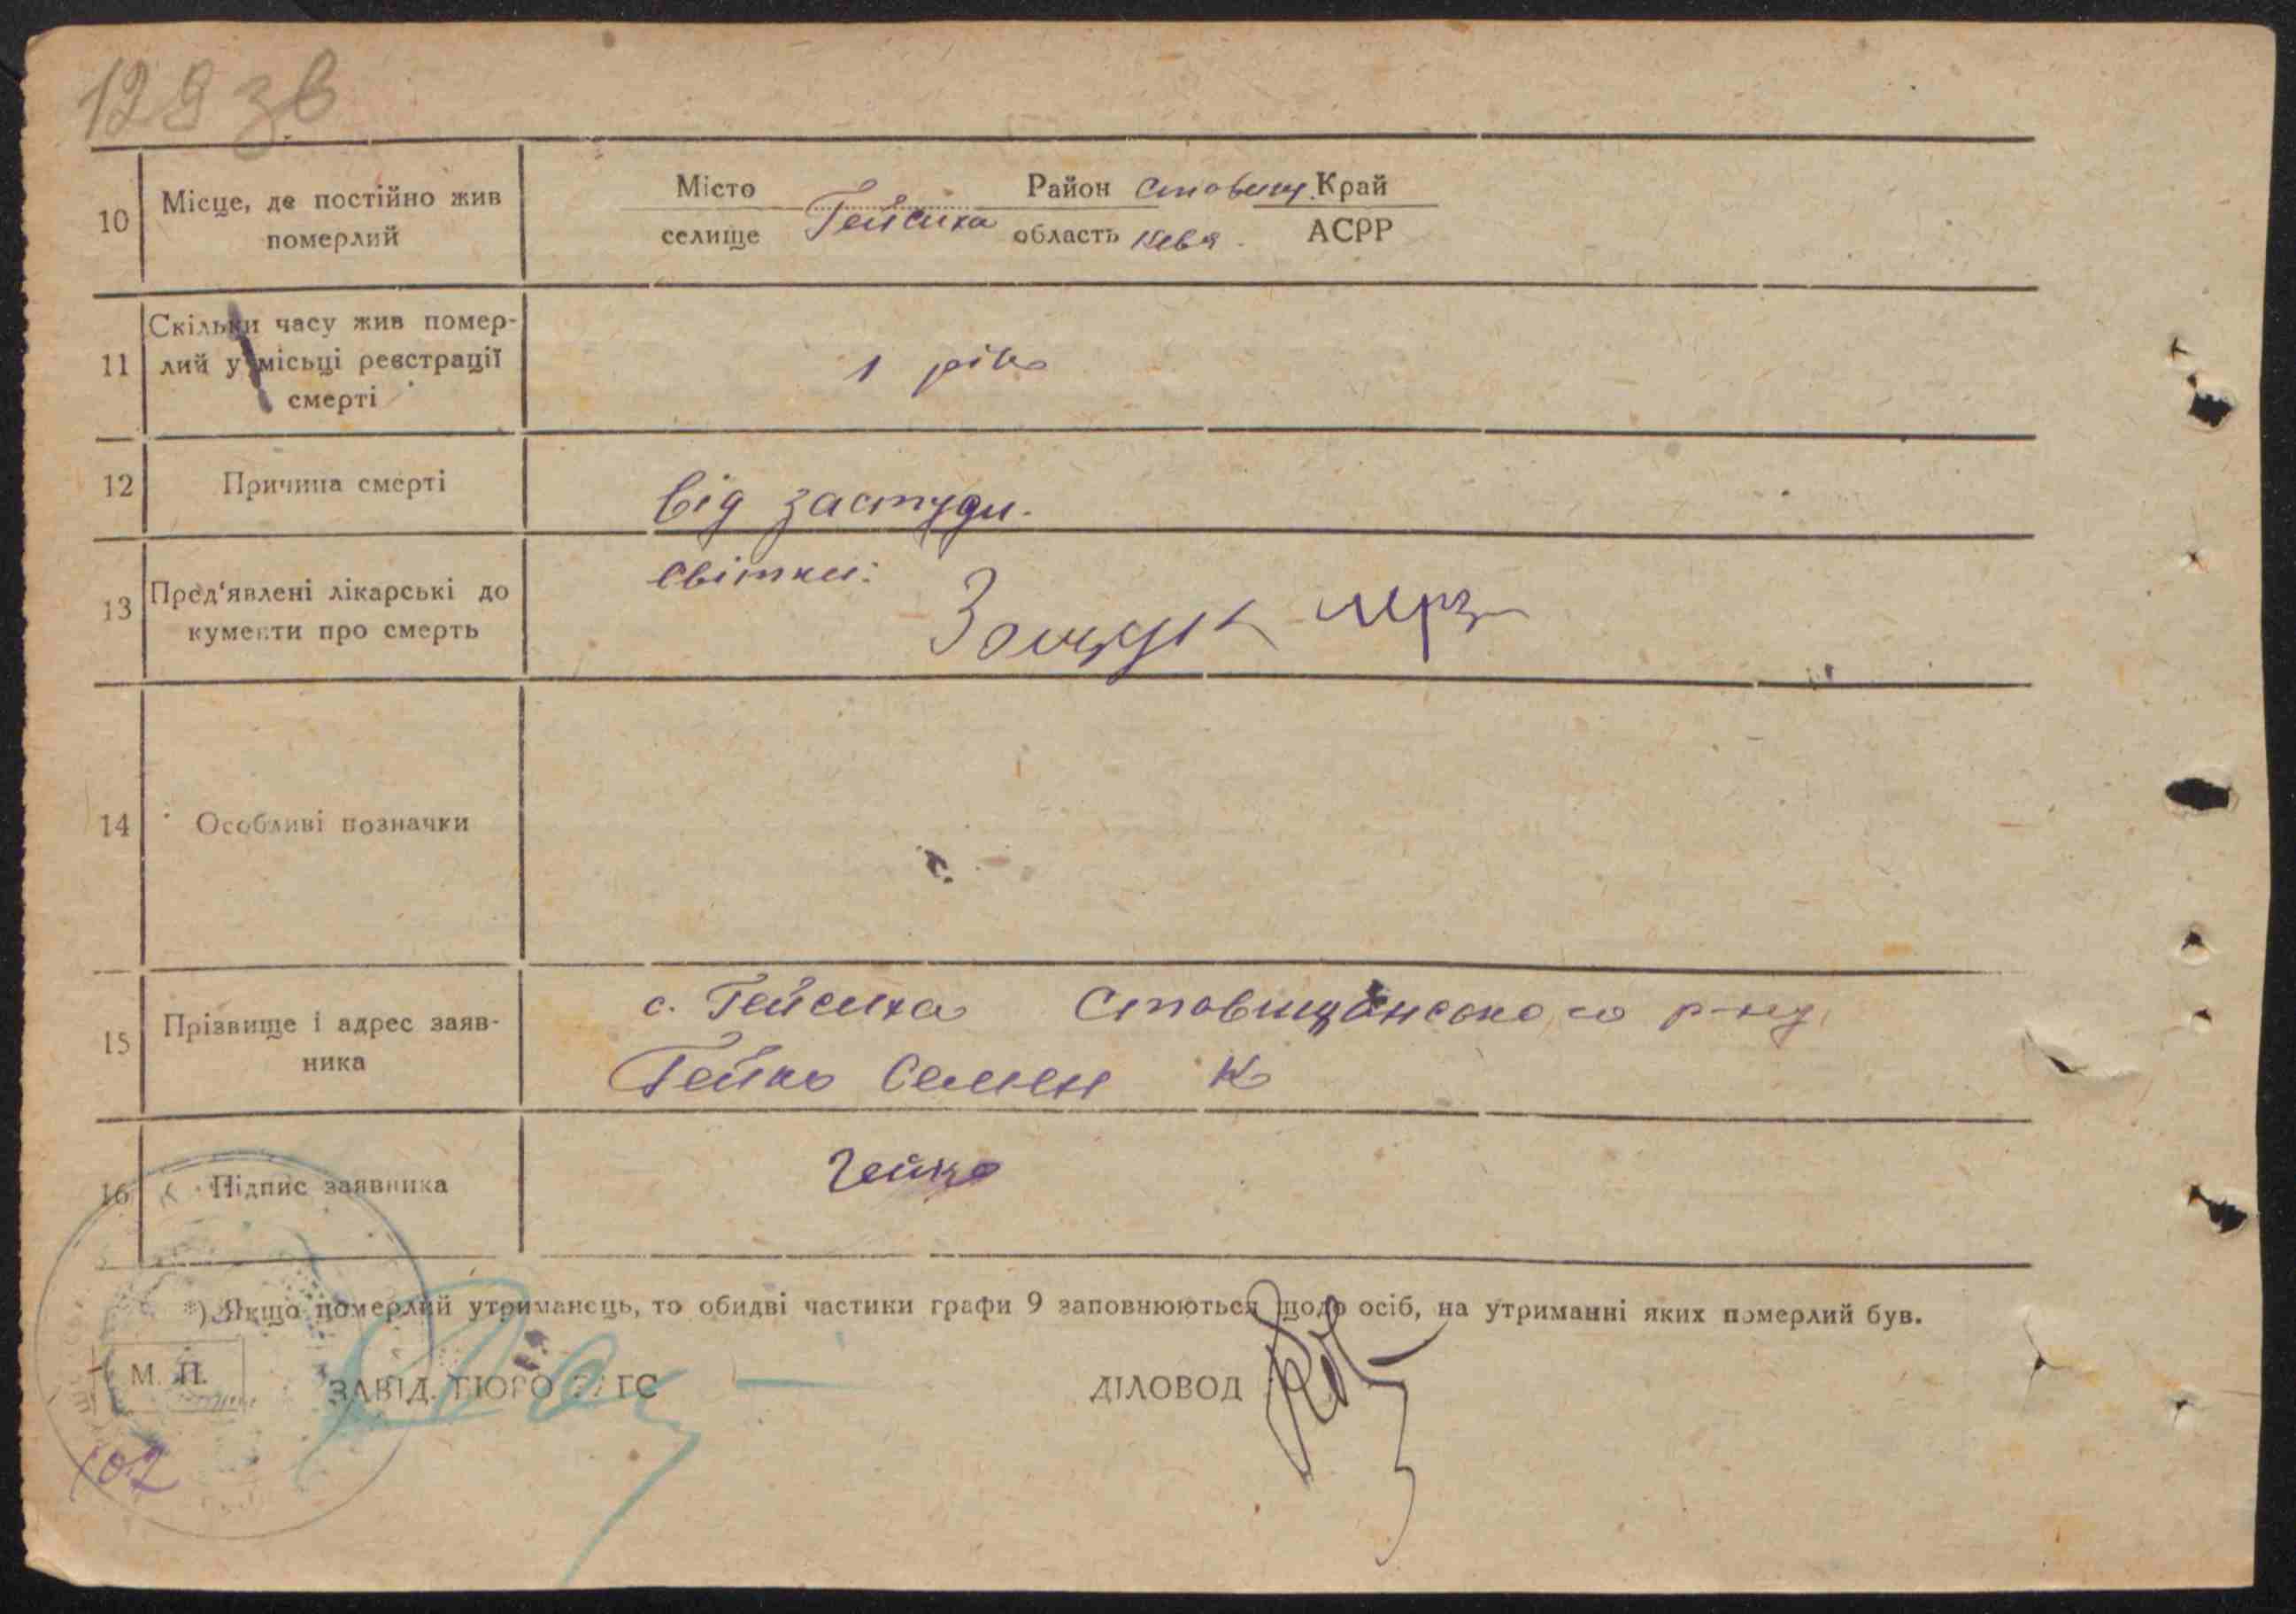 129 зв
10 Місце, де постійно жив померлий
Місто Район Ставищ. Край
селище Гейсиха область Київ. АСРР
11 Скільки часу жив помер-
лий у місьці реєстрації
смерті
1 рік
12 Причина смерті
від застуди.
13 Пред'явлені лікарські до
кументи про смерть
свідки:
14 Особливі позначки
15 Прізвище і адрес заяв-
ника
с. Гейсиха Ставищанського р-ну
Гейко Семен К
16 Підпис заявника
Гейко
*) Якщо померлий утриманець, то обидві частини графи 9 заповнюються щодо осіб, на утриманні яких померлий був.
М. П. ЗАВІД. БЮРО ЗАГС ДІЛОВОД
102